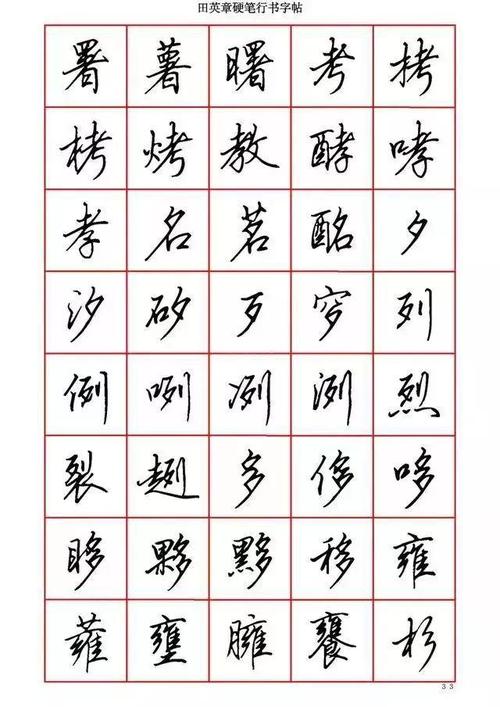 田英章硬笔行书字帖
署 薯 曙 考 拷
栲 烤 教 酵 哮
孝 名 茗 酩 夕
汐 矽 歹 穸 列
例 咧 冽 洌 烈
裂 趔 多 侈 哆
眵 夥 黟 移 雍
蕹 壅 臃 饔 杉
33